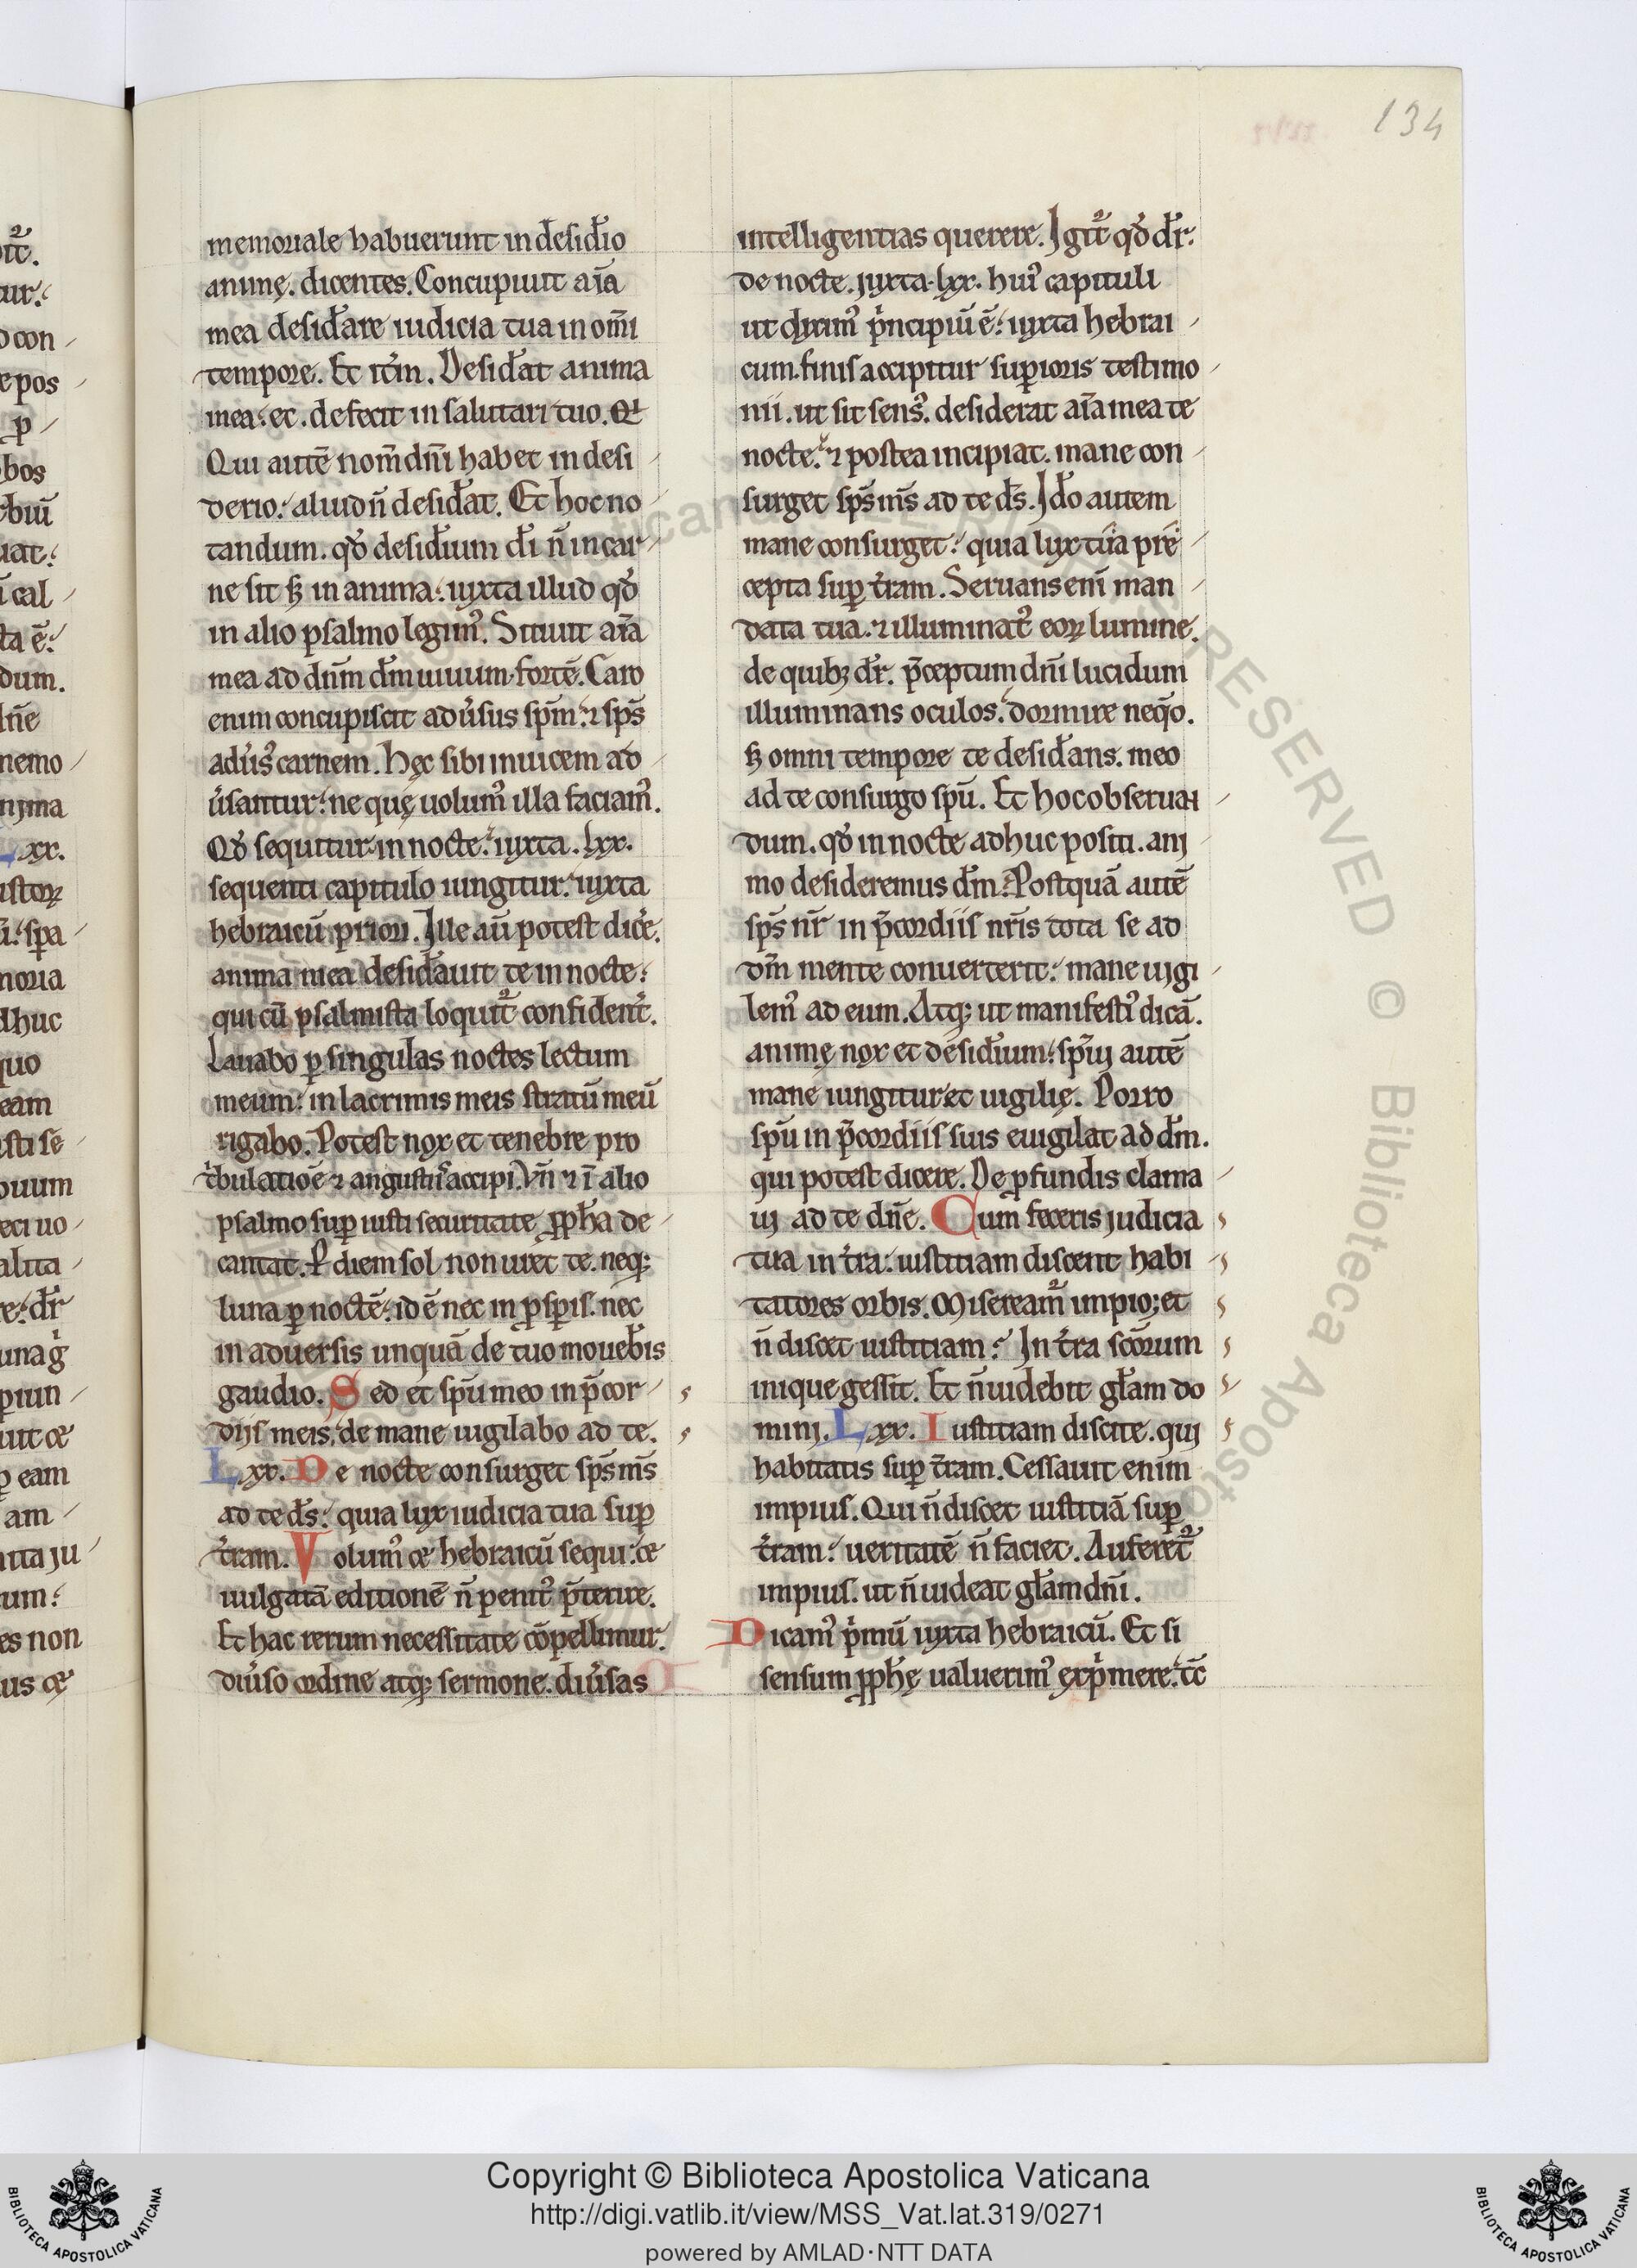 134
memoriale habuerunt in desid̄io
animę. dicentes. Concupiuit aīa
mea desid̄are iudicia tua in om̄i
tempore. Et it̄m. Desid̄at anima
mea: et. defecit in salutari tuo.
Qui autē nom̄ dn̄i habet in desi
derio: aliud n̄ desid̄at. Et hoc no
tandum. qd̄ desid̄ium dī n̄ in car
ne sit sꝫ in anima: iuxta illud qd̄
in alio psalmo legimꝰ. Sitiuit aīa
mea ad dn̄m dm̄ uiuum. fortē. Caro
enim concupiscit adūsus sp̄m: ⁊ sp̄s
adūsꝰ carnem. Hęc sibi inuicem ad
ūsantur: ne quę uolumꝰ illa faciamꝰ.
Qd̄ sequitur in nocte: iuxta. lxx.
sequenti capitulo iungitur: iuxta
hebraicū priori. Ille aū potest dic̄e.
anima mea desid̄auit te in nocte:
qui cū psalmista loquit᷑ confident̄.
Lauabo ꝑ singulas noctes lectum
meum: in lacrimis meis stratū meū
rigabo. Potest nox et tenebre pro
t̄bulatiōe ⁊ angustiis accipi. Vn̄ ⁊ ī alio
psalmo suꝑ iusti securitate ꝓph̄a de
cantat. P̱ diem sol non uret te. neqꝫ
luna ꝑ noctē: id ē nec in ꝓsꝑis. nec
in aduersis unquā de tuo mouebis
gaudio. Sed et sp̄u meo in p̄cor
diis meis: de mane uigilabo ad te.
Lxx. De nocte consurget sp̄s ms̄
ad te ds̄: quia lux iudicia tua suꝑ
t̄ram. Volumꝰ et hebraicū sequi: et
uulgatā editionē n̄ penitꝰ p̄terire.
Et hac rerum necessitate cōpellimur.
diūso ordine atqꝫ sermone. diūsas
intelligentias querere. Igit᷑ qd̄ dr̄.
de nocte. iuxta. lxx. huiꝰ capituli
ut diximꝰ p̄ncipiū ē: iuxta hebrai
cum. finis accipitur suꝑioris testimo
nii. ut sit sensꝰ. desiderat aīa mea te
nocte: ⁊ postea incipiat. mane con
surget sp̄s ms̄ ad te ds̄. Ido autem
mane consurget: quia lux tua pre
cepta suꝑ t̄ram. Seruans enī man
data tua. ⁊ illuminat̄ eoꝝ lumine.
de quibꝫ dr̄. p̄ceptum dn̄i lucidum
illuminans oculos. dormire neqo.
sꝫ omni tempore te desid̄ans. meo
ad te consurgo sp̄u. Et hoc obseruan
dum. qd̄ in nocte adhuc positi. ani
mo desideremus dm̄. Postquā autē
sp̄s nr̄ in p̄cordiis nr̄is tota se ad
dm̄ mente conuerterit: mane uigi
lemꝰ ad eum. Atqꝫ ut manifestiꝰ dicā.
animę nox et desid̄ium: sp̄ui autē
mane iungitur et uigilię. Porro
sp̄u in p̄cordiis suis euigilat ad dm̄.
qui potest dicere. De ꝓfundis clama
ui ad te dn̄e. Cum feceris iudicia
tua in t̄ra: iustitiam discent habi
tatores orbis. Misereamur impio; et
n̄ discet iustitiam: In t̄ra scōrum
inique gessit. Et n̄ uidebit gl̄am do
mini. Lxx. Iustitiam discite. qui
habitatis suꝑ t̄ram. Cessauit enim
impius. Qui n̄ discet iustitiā suꝑ
t̄ram: ueritatē n̄ faciet. Auferet᷑
impius. ut n̄ uideat gl̄am dn̄i.
Dicamꝰ p̄mū iuxta hebraicū. Et si
sensum ꝓph̄ę ualuerimꝰ exp̄mere: tc̄
Copyright © Biblioteca Apostolica Vaticana
http://digi.vatlib.it/view/MSS_Vat.lat.319/0271
powered by AMLAD·NTT DATA
BIBLIOTECA APOSTOLICA VATICANA
BIBLIOTECA APOSTOLICA VATICANA